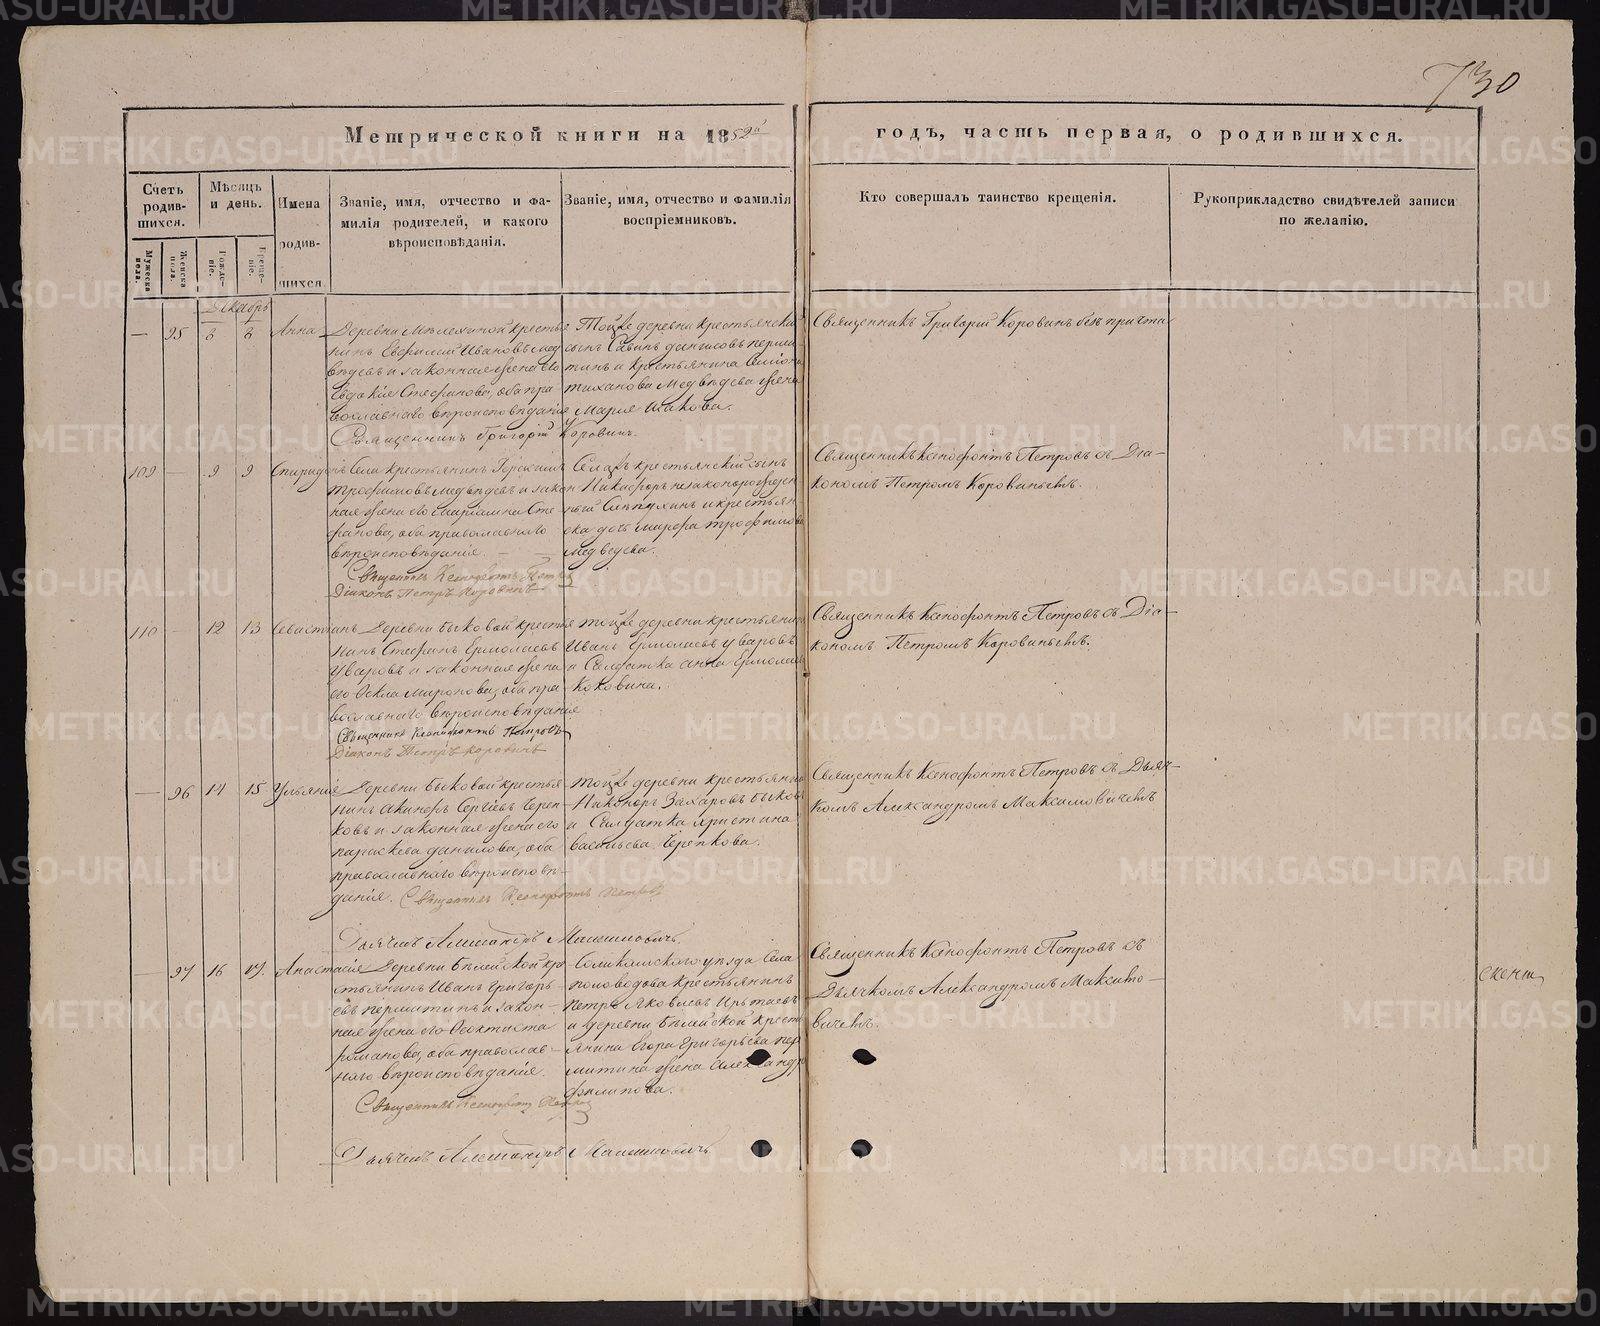 730
Метрической книги на 1852й
годъ, часть первая, о родившихся.
Счетъ родив-шихся.
Мѣсяцъ и день.
Имена родив-шихся.
Званіе, имя, отчество и фа-
милія родителей, и какого
вѣроисповѣданія.
Званіе, имя, отчество и фамилія
воспріемниковъ.
Кто совершалъ таинство крещенія.
Рукоприкладство свидѣтелей записи
по желанію.
Мужеска пола.
Женска пола.
Рожде-ніе.
Креще-ніе.
Декабрь
— 95 8 8 Анна
Деревни крестья-
нинъ Евфимій Ивановъ Мед-
вѣдевъ и законная жена его
Евдокія Стефанова, оба пра-
вославнаго вѣроисповѣданія
Священникъ Григорій Коровинъ.
Тойже деревни крестьянскій
сынъ Савинъ Даниловъ Перми-
тинъ и крестьянина
Медвѣдева жена
Марія Исакова.
Священникъ Григорій Коровинъ безъ причта
109 — 9 9 Спиридонъ
Села крестьянинъ
Трофимовъ Медвѣдевъ и закон-
ная жена его Сте-
фанова, оба православнаго
вѣроисповѣданія.
Священникъ Ксенофонтъ Петровъ
Діаконъ Петръ Коровинъ
Села крестьянскій сынъ
Никифоръ незаконорожден-
ный и крестьян-
ска дочь Марфа Трофимова
Медведева.
Священникъ Ксенофонтъ Петровъ съ Діа-
кономъ Петромъ Коровинымъ.
110 — 12 13 Севастіанъ
Деревни Быковой крестья-
нинъ Стефанъ Ермолаевъ
Уваровъ и законная жена
его Ѳекла Миронова, оба пра-
вославнаго вѣроисповѣданія
Священникъ Ксенофонтъ Петровъ
Діаконъ Петръ Коровинъ
Тойже деревни крестьянинъ
Иванъ Ермолаевъ Уваровъ
и Салдатка Анна Ермолаева
Коковина.
Священникъ Ксенофонтъ Петровъ съ Діа-
кономъ Петромъ Коровинымъ.
— 96 14 15 Ульянія
Деревни Быковой крестья-
нинъ Акинфъ Сергѣевъ Череп-
ковъ и законная жена его
Параскева Данилова, оба
православнаго вѣроисповѣ-
данія. Священникъ Ксенофонтъ Петровъ
Дьячекъ Александръ Максимовичь.
Тойже деревни крестьянинъ
Никоноръ Захаровъ Быковъ
и Салдатка Христина
Васильева Черепкова.
Священникъ Ксенофонтъ Петровъ съ Дьяч-
комъ Александромъ Максимовичемъ
— 97 16 17 Анастасія
Деревни Бѣлейской кре-
стьянинъ Иванъ Григорь-
евъ Пермитинъ и закон-
ная жена его Ѳеоктиста
Романова, оба православ-
наго вѣроисповѣданія.
Священникъ Ксенофонтъ Петровъ
Дьячекъ Александръ Максимовичь
Соликамскаго уѣзда Села
Половодова крестьянинъ
Петръ Яковлевъ
и деревни Бѣлейской кресть-
янина Егора Григорьева Пер-
митина жена Александра
Филипова.
Священникъ Ксенофонтъ Петровъ съ
Дьячкомъ Александромъ Максимо-
вичемъ.